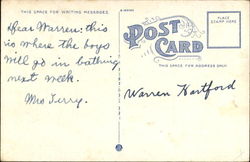 THIS SPACE FOR WRITING MESSAGES
POST CARD
PLACE
STAMP HERE
THIS SPACE FOR ADDRESS ONLY
Dear Warren: this
is where the boys
will go in bathing
next week.
Mrs Terry.
Warren Hartford